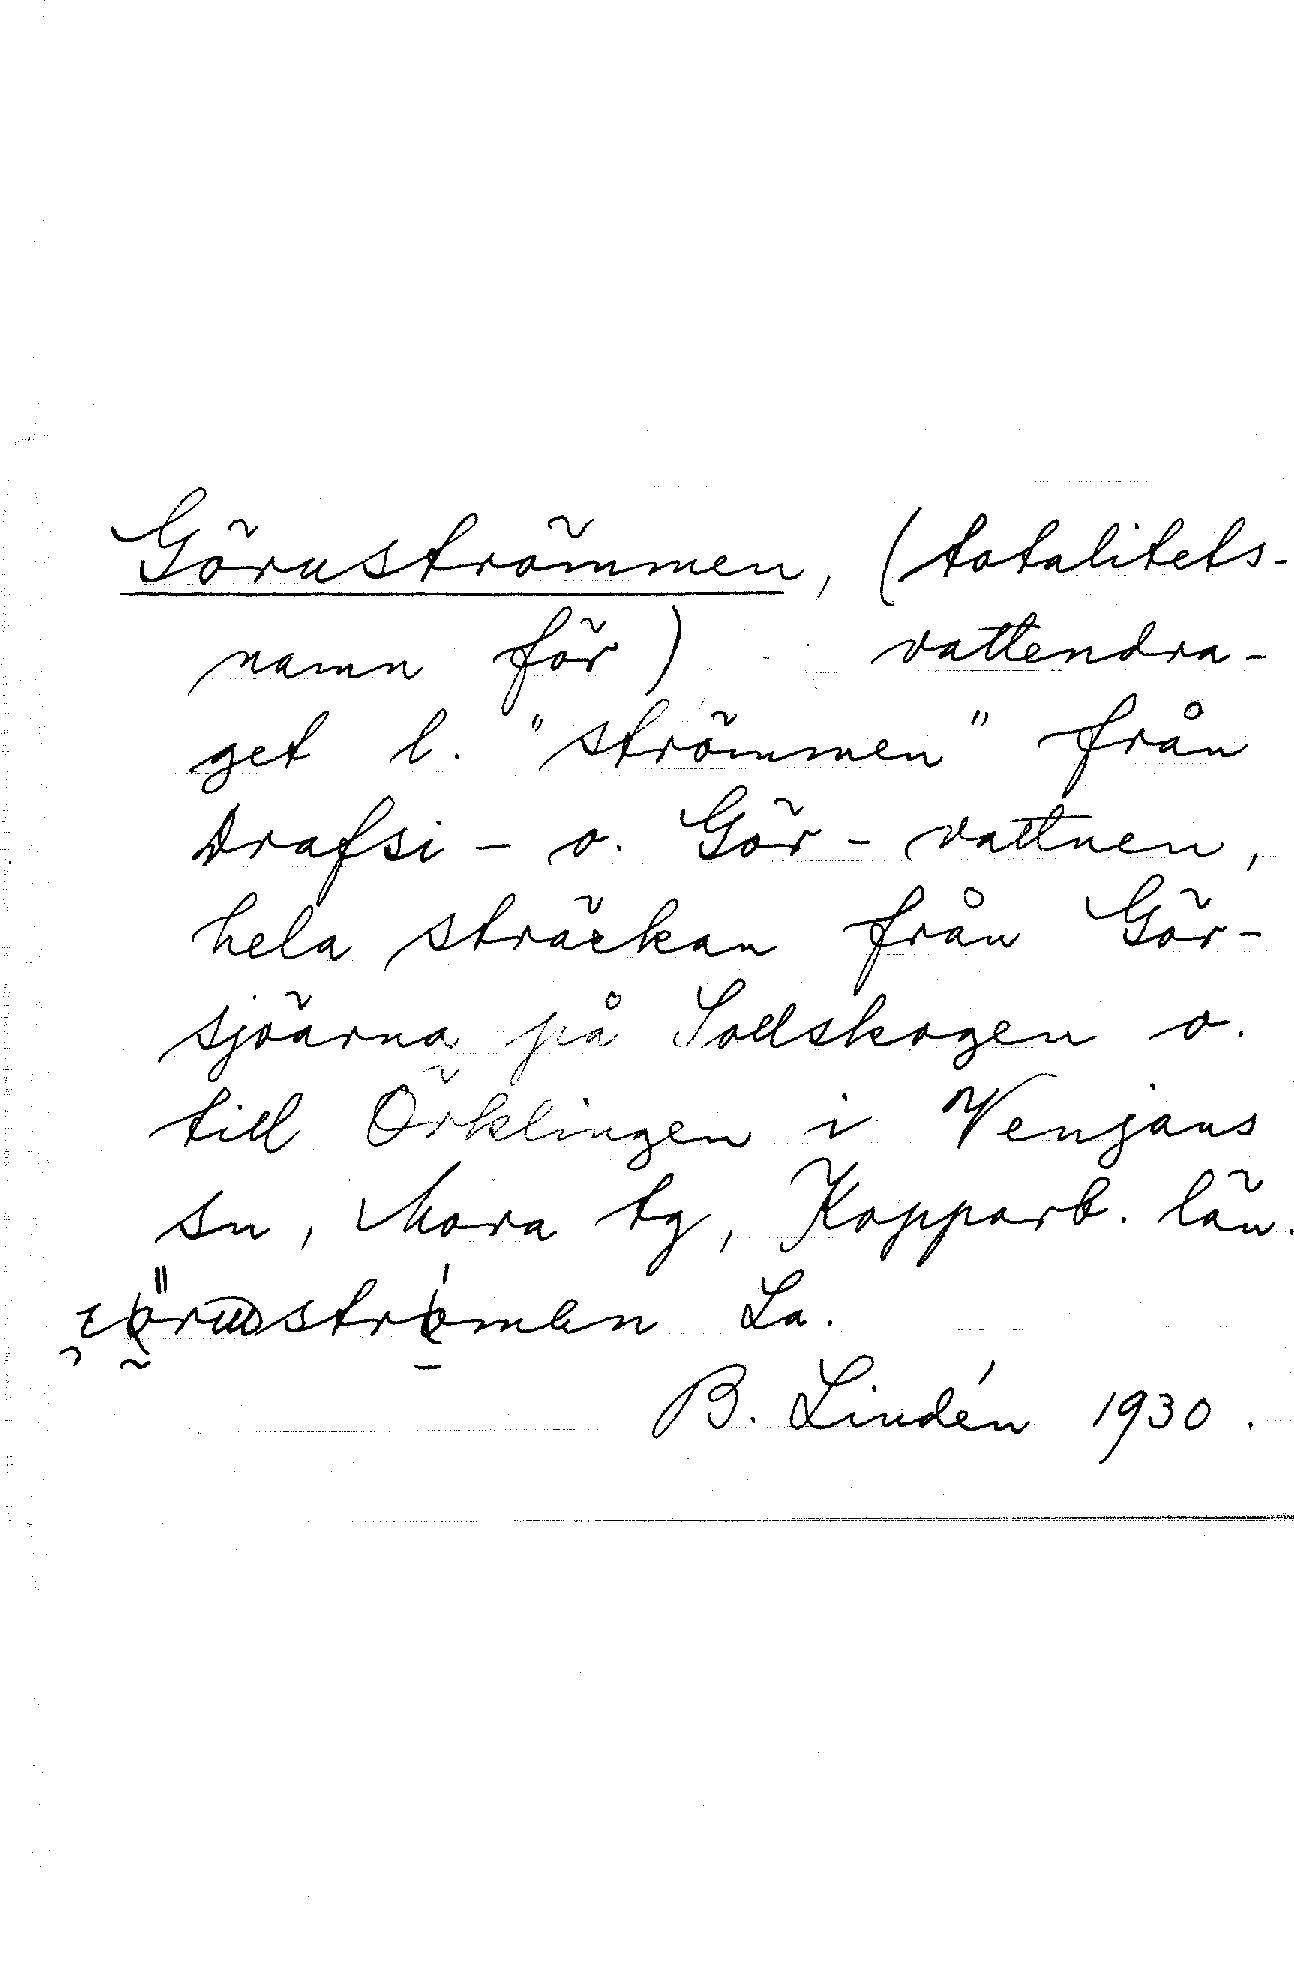 Görnströmmen, (totalitets-
namn för) vattendra-
get l. "strömmen" från
Drafsi- o. Gör-vattnen,
hela sträckan från Gör-
sjöarna på Sollskogen o.
till Örklingen i Venjans
sn, Mora tg, Kopparb. län.
La.
B. Lindén 1930.